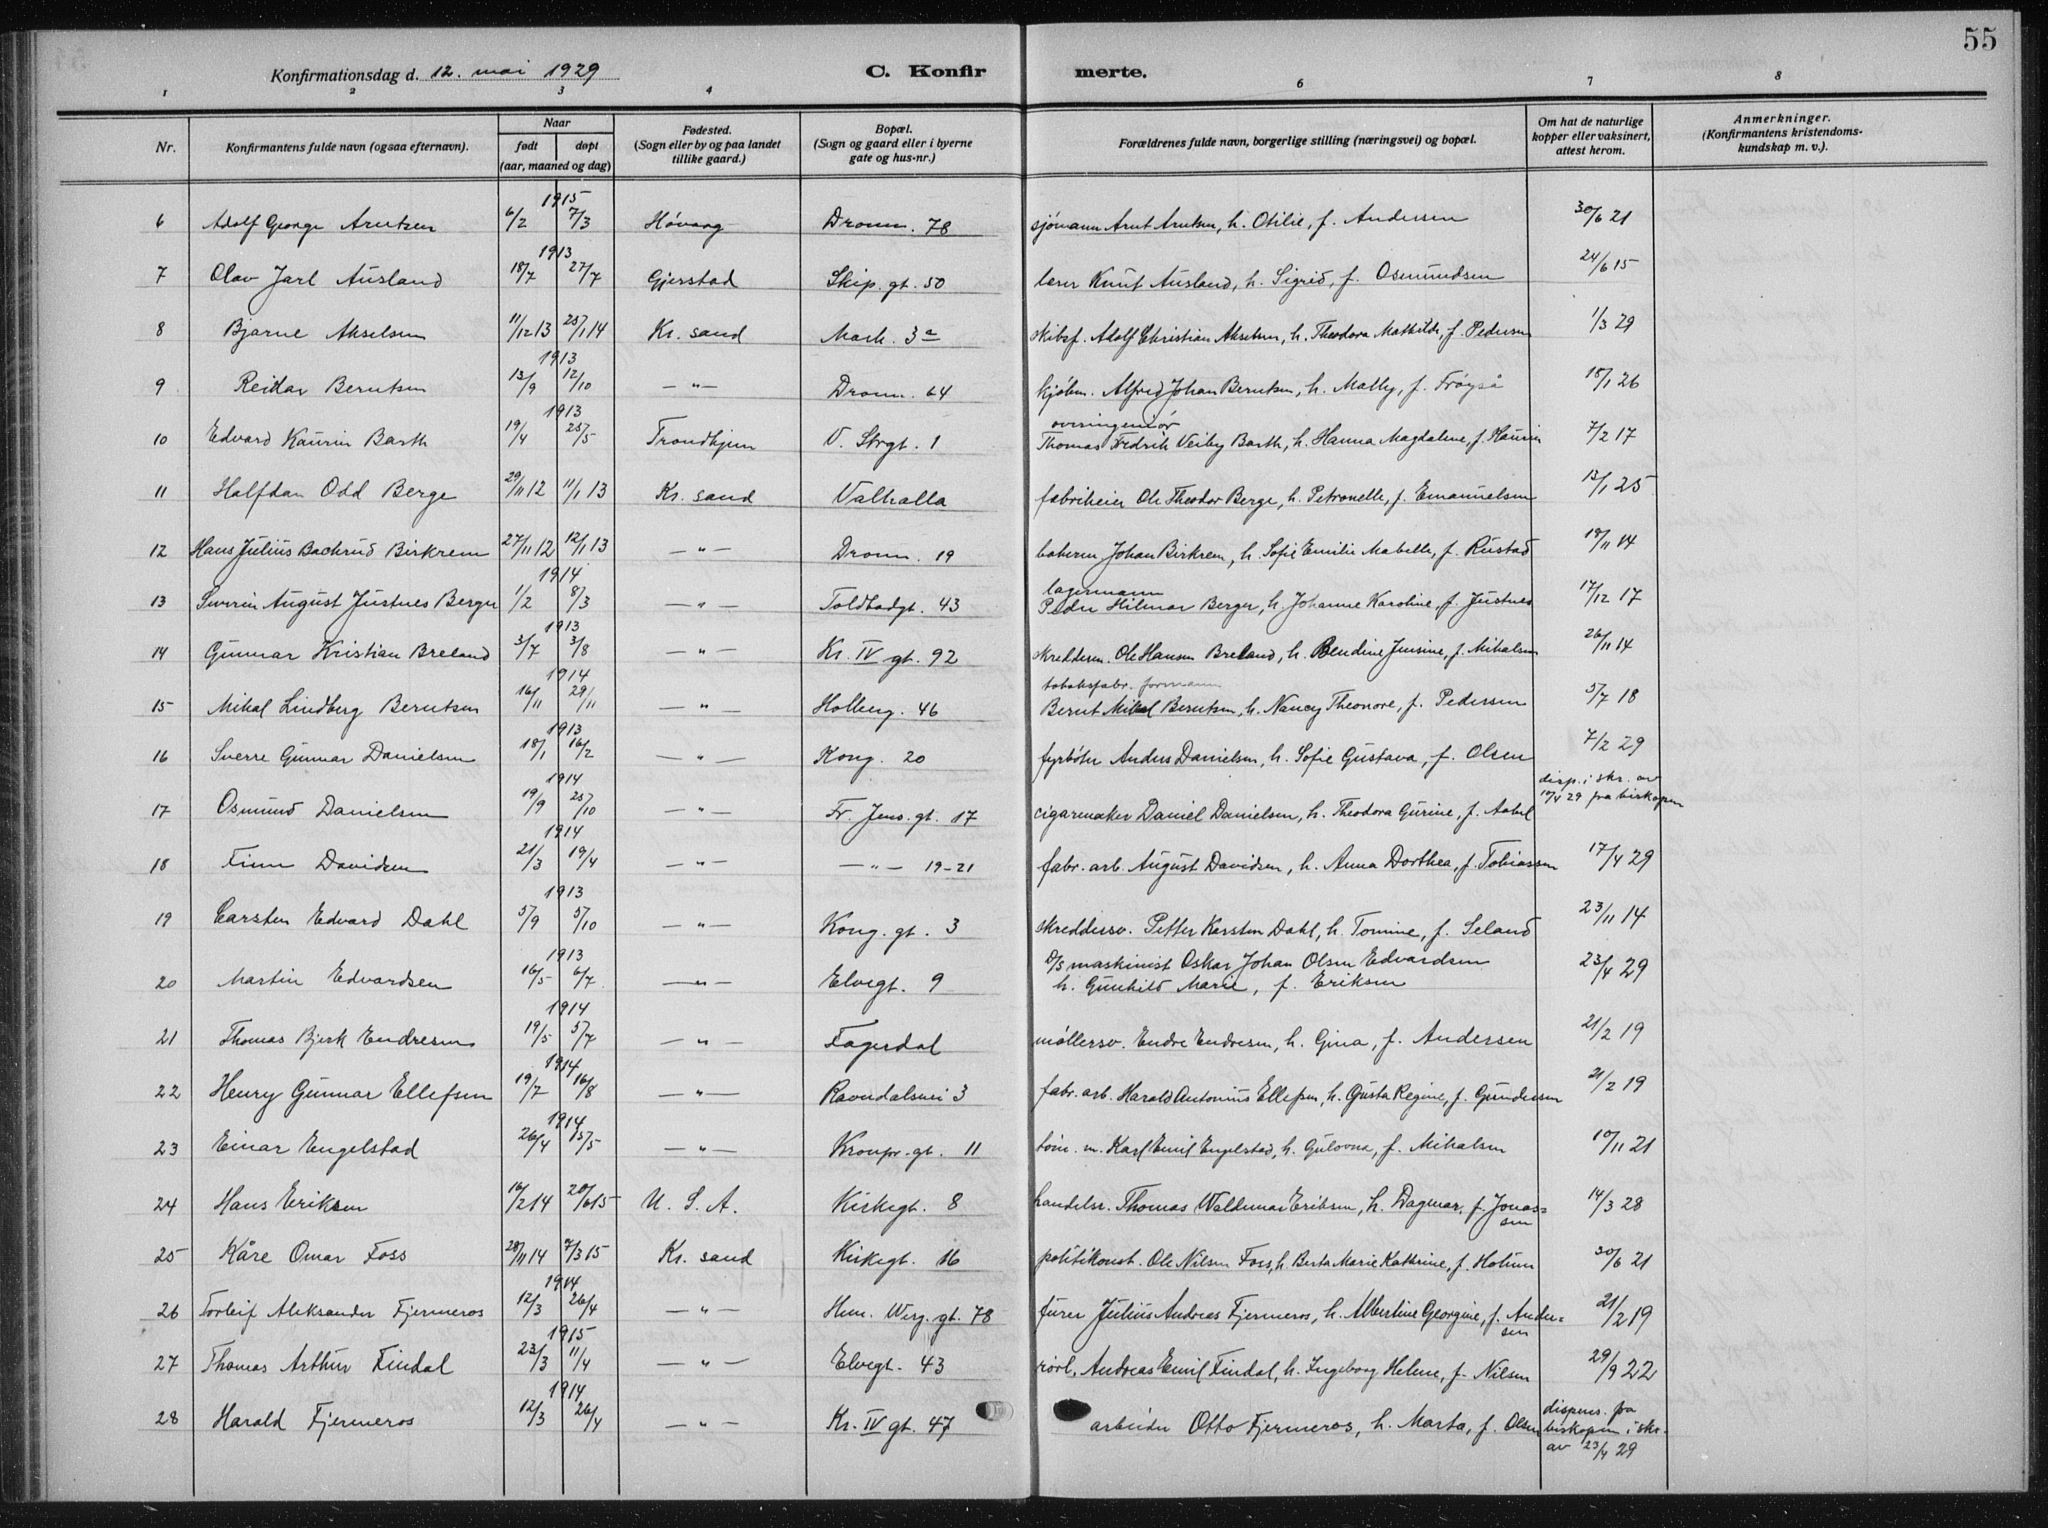 55
Konfirmationsdag d. 12. mai 1929
C. Konfir merte.
1 2 3 4 6 7 8
Nr. Konfirmantens fulde navn (ogsaa efternavn). Naar født døpt (aar, maaned og dag) Fødested. (Sogn eller by og paa landet tillike gaard.) Bopæl. (Sogn og gaard eller i byerne gate og hus-nr.) Forældrenes fulde navn, borgerlige stilling (næringsvei) og bopæl. Om hat de naturlige kopper eller vaksinert, attest herom. Anmerkninger. (Konfirmantens kristendoms-kundskap m. v.).
1915
6 Adolf George Arntsen 6/2 7/3 Høvaag Dronn. 78 sjømann Arnt Arntsen, h. Otilie, f. Andersen 30/6 21
1913
7 Olav Jarl Ausland 18/7 27/7 Gjerstad Skip. gt. 50 lærer Knut Ausland, h. Sigrid, f. Osmundsen 24/6 15
8 Bjarne Akselsen 11/12 13 25/1 14 Kr. sand Mark. 3a skibsf. Adolf Christian Akselsen, h. Theodora Mathilde, f. Pedersen 1/3 29
1913
9 Reidar Berntsen 13/9 12/10 —"— Dronn. 64 kjøbm. Alfred Johan Berntsen, h. Mally, f. Frøyså 18/1 26
1913
overingeniør
10 Edvard Kaurin Barth 19/4 25/5 Trondhjem V. Strgt. 1 Thomas Fredrik Veiby Barth, h. Hanna Magdalene, f. Kaurin 7/2 17
11 Halfdan Odd Berge 29/11 12 11/1 13 Kr. sand Valhalla fabrikeier Ole Theodor Berge, h. Petronelle, f. Emanuelsen 13/1 25
12 Hans Julius Bachrud Birkrem 27/11 12 12/1 13 —"— Dronn. 19 bokerm Johan Birkrem, h. Sofie Emilie Mabelle, f. Rustad 18/11 14
1914
lagermann
13 Severin August Justnes Berger 1/2 8/3 —"— Toldbodgt. 43 Peder Hilmar Berger, h. Johanne Karoline, f. Justnes 17/12 17
1913
14 Gunnar Kristian Breland 3/7 3/8 —"— Kr. IV gt. 92 skreddersv. Ole Hansen Breland, h. Bendine Jensine, f. Mikalsen 26/11 14
1914
tobaksfabr. formann
15 Mikal Lindberg Berntsen 16/11 29/11 —"— Holberg. 46 Bernt Mikal Berntsen, h. Nancy Theonore, f. Pedersen 5/7 18
1913
16 Sverre Gunnar Danielsen 18/1 16/2 —"— Kong. 20 fyrbøter Anders Danielsen, h. Sofie Gustava, f. Olsen 7/2 29
1914
disp. i skr. av
10/4 29 fra biskopen
17 Osmund Danielsen 19/9 25/10 —"— Fr. Jens. gt. 17 cigarmaker Daniel Danielsen, h. Theodora Gurine, f. Aabel
1914
18 Finn Davidsen 21/3 19/4 —"— —"— 19-21 fabr. arb. August Davidsen, h. Anna Dorthea, f. Tobiassen 17/4 29
1913
19 Carsten Edvard Dahl 5/9 5/10 —"— Kong. gt. 3 skreddersv. Petter Karsten Dahl, h. Tomine, f. Seland 23/11 14
1913
D/S maskinist Oskar Johan Olsen Edvardsen
20 Martin Edvardsen 16/5 6/7 —"— Elvegt. 9 h. Gunhild Marie, f. Eriksen 23/4 29
1914
21 Thomas Bjerk Endresen 19/5 5/7 —"— Fagerdal møllersv. Endre Endresen, h. Gina, f. Andersen 21/2 19
1914
22 Henry Gunnar Ellefsen 19/7 16/8 —"— Ravndalsvei 3 fabr. arb. Harald Antonius Ellefsen, h. Gusta Regine, f. Gundersen 21/2 19
1914
23 Einar Engelstad 26/4 15/5 —"— Kronpr. gt. 11 tøm. m. Karl Emil Engelstad, h. Gulovna, f. Mikalsen 10/11 21
24 Hans Eriksen 16/2 14 20/6 15 U. S. A. Kirkegt. 8 handelsr. Thomas Waldemar Eriksen, h. Dagmar, f. Jonas-
sen 14/3 28
25 Kåre Omar Foss 28/11 14 7/3 15 Kr. sand Kirkegt. 16 politikonst. Ole Nilsen Foss, h. Berta Marie Kathrine, f. Holum 30/6 21
1914
26 Torleif Aleksander Fjermeros 12/3 26/4 —"— Hen. Werg. gt. 78 furer Julius Andreas Fjermeros, h. Albertine Georgine, f. Ander-
sen 21/2 19
1915
27 Thomas Arthur Findal 23/3 11/4 —"— Elvegt. 43 rørl. Andreas Emil Findal, h. Ingeborg Helene, f. Nilsen 29/9 22
1914
28 Harald Fjermeros 12/3 26/4 —"— Kr. IV gt. 47 arbeider Otto Fjermeros, h. Marta, f. Olsen dispens. fra
biskopen i skr.
av 23/4 29